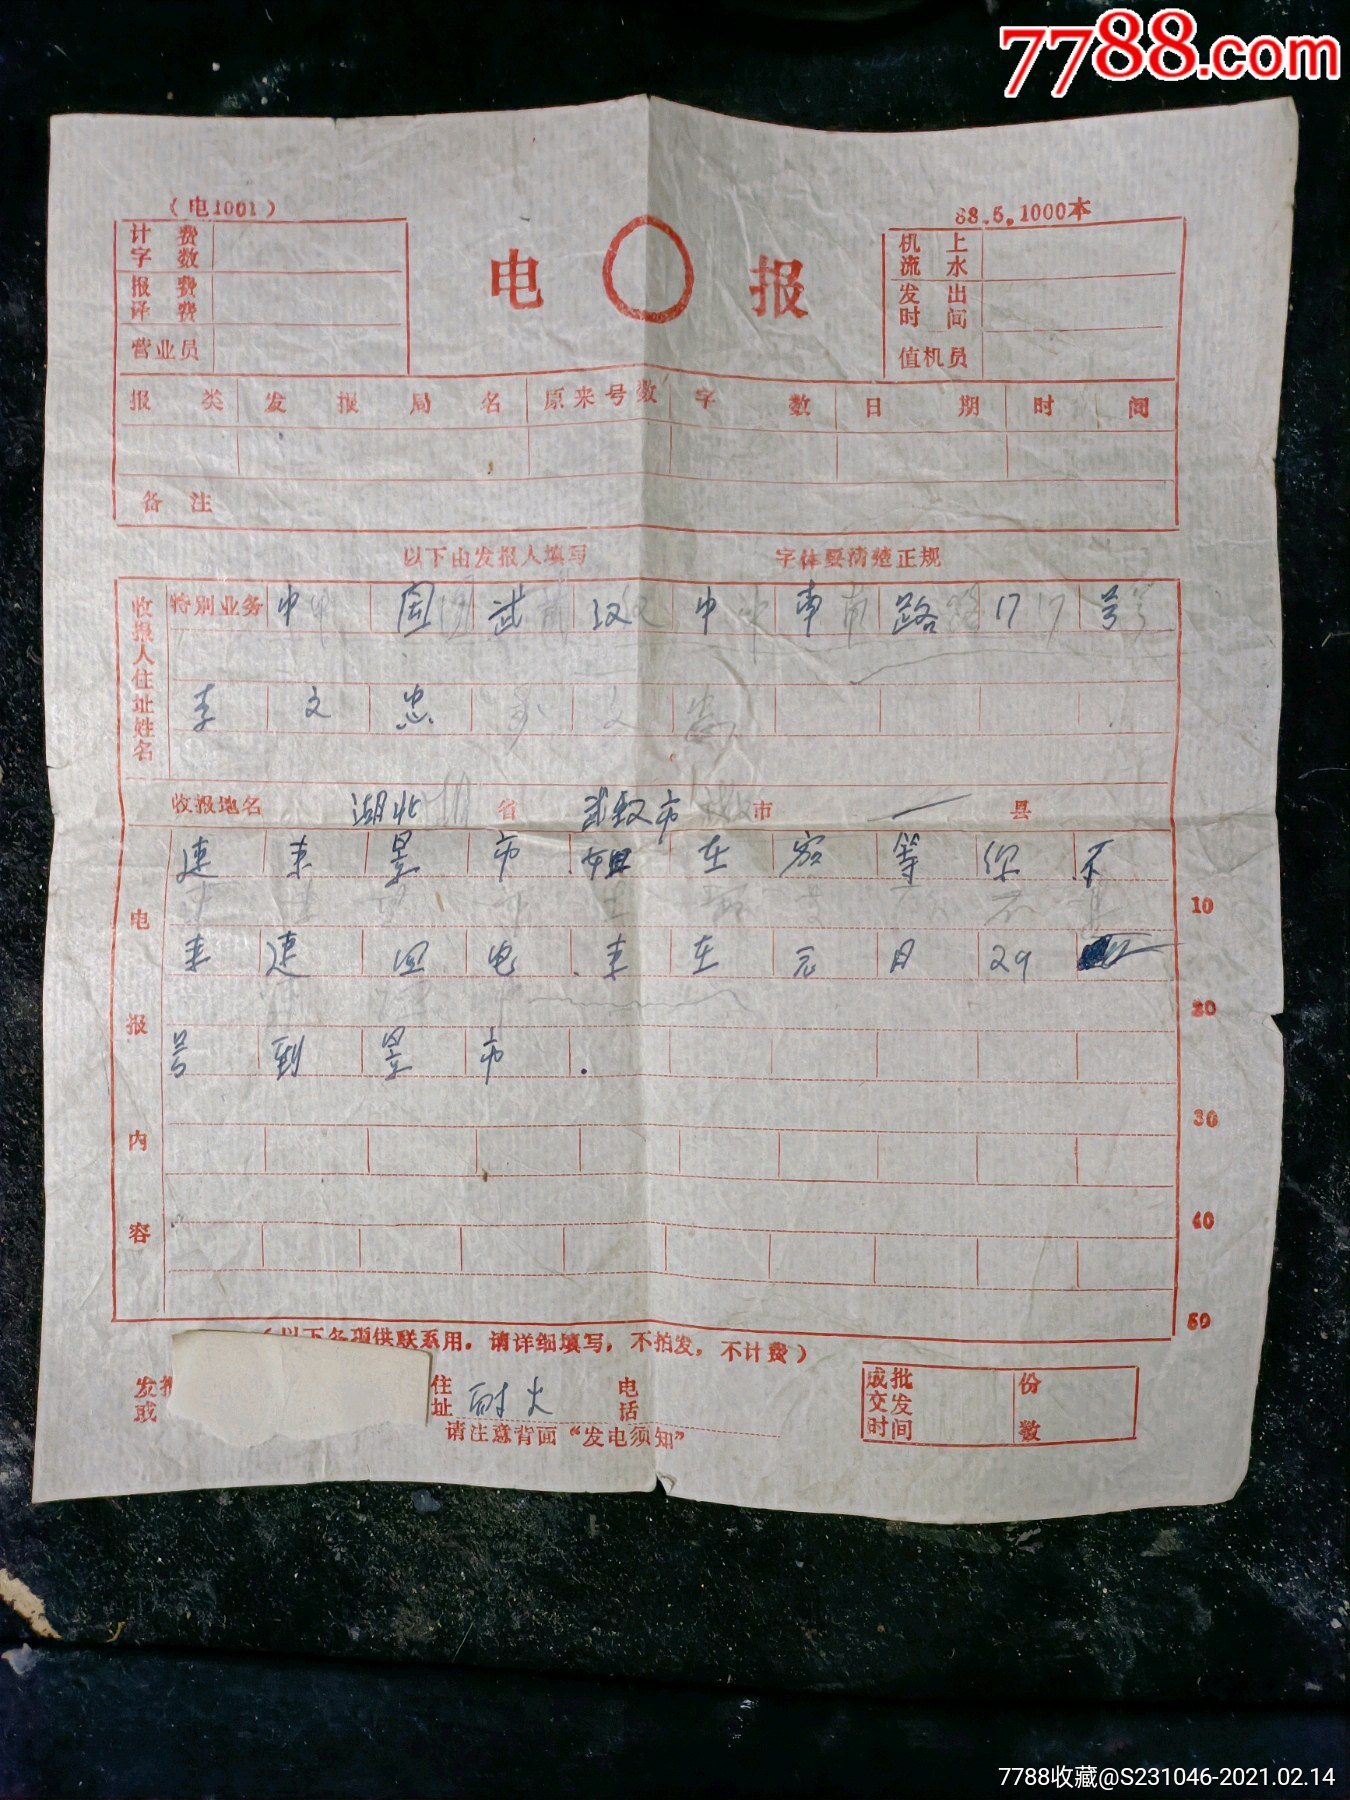 7788.com
(电1001)
88.5.1000本
计费字数
报费译费
营业员
电 报
机上流水
发出时间
值机员
报类 发报局名 原来号数 字数 日期 时间
备注
以下由发报人填写 字体要清楚正规
收报人住址姓名
特别业务 中国武汉中南路17号
李文忠
收报地名 湖北 省 武汉市 市 一 县
电报内容
速来昱市姐在家等你不
10
来速回电.来在元月29
20
号到昱市.
30
40
50
(以下各项供联系用,请详细填写,不拍发,不计费)
发报
或
住址 耐火 电话
请注意背面“发电须知”
成批交发时间
份数
7788收藏@S231046-2021.02.14